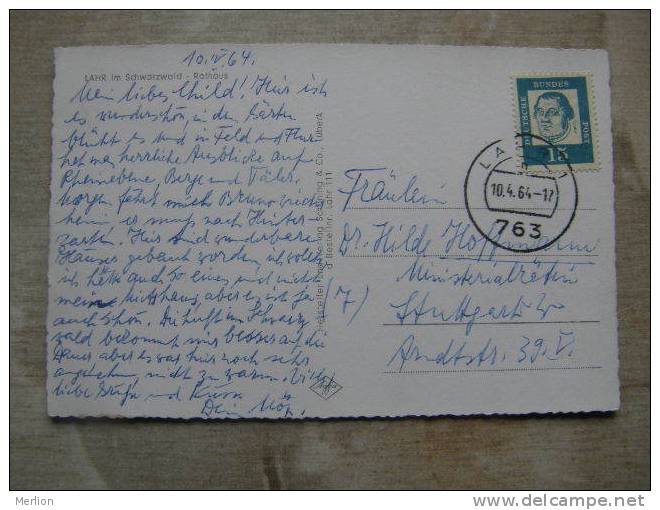 10.IV.64.
LAHR im Schwarzwald - Rathaus
Mein liebes Child! Hier ist
es wunderschön, in den Gärten
blüht es und in Feld und Flur
hat man herrliche Ausblicke auf
Rheinebene Berge und Täler.
Morgen fährt mich Bruno wieder
heim er muss nach Hinter-
zarten. Hier sind wunderbare
Häuser gebaut worden, ich wollte
ich hätte auch so eines und nicht
mein Miethaus, aber es ist ja
auch schön. Die Luft im Schwarz
wald bekommt mir besser auf die
Dauer aber es war hier noch sehr
angenehm, nicht zu warm. Viele
liebe Grüße und Küsse
Dein
DEUTSCHE BUNDES POST
15
LAHR
10.4.64-17
763
Fräulein
Dr. Hilde Hoffmann
Ministerialrätin
(7) Stuttgart W
Arndtstr. 39.V.
& Co., Lübeck
Bestellnr. Lahr 111
Merlion
www.delcampe.net